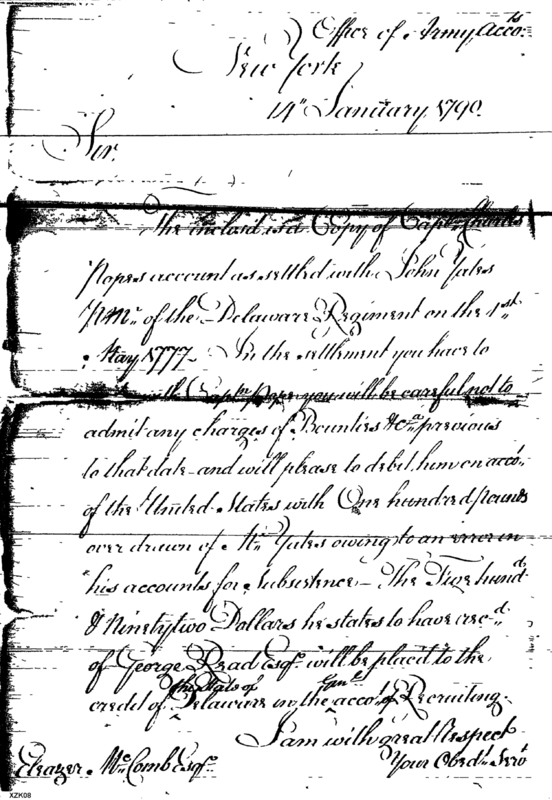 Office of Army Accots.
New York
14th January 1790.
Sir.
The inclosd is a Copy of Captn. Charles
Popes account as settled with John Yates
P.Mr. of the Delaware Regiment on the 1st.
May 1777. In the settlement you have to
with Captn. Pope you will be careful not to
admit any charges of Bounties &ca. previous
to that date and will please to debit him on acco.
of the United States with One hundred pounds
over drawn of Mr. Yates owing to an error in
his accounts for Subsistence— The Five hundd.
& Ninetytwo Dollars he states to have recd.
of George Read Esqr. will be placed to the
the State of
credit of Delaware in the acco. of Recruiting.
I am with great Respect
Your Obedt. Servt
Eleazer McComb Esqr.
XZK08